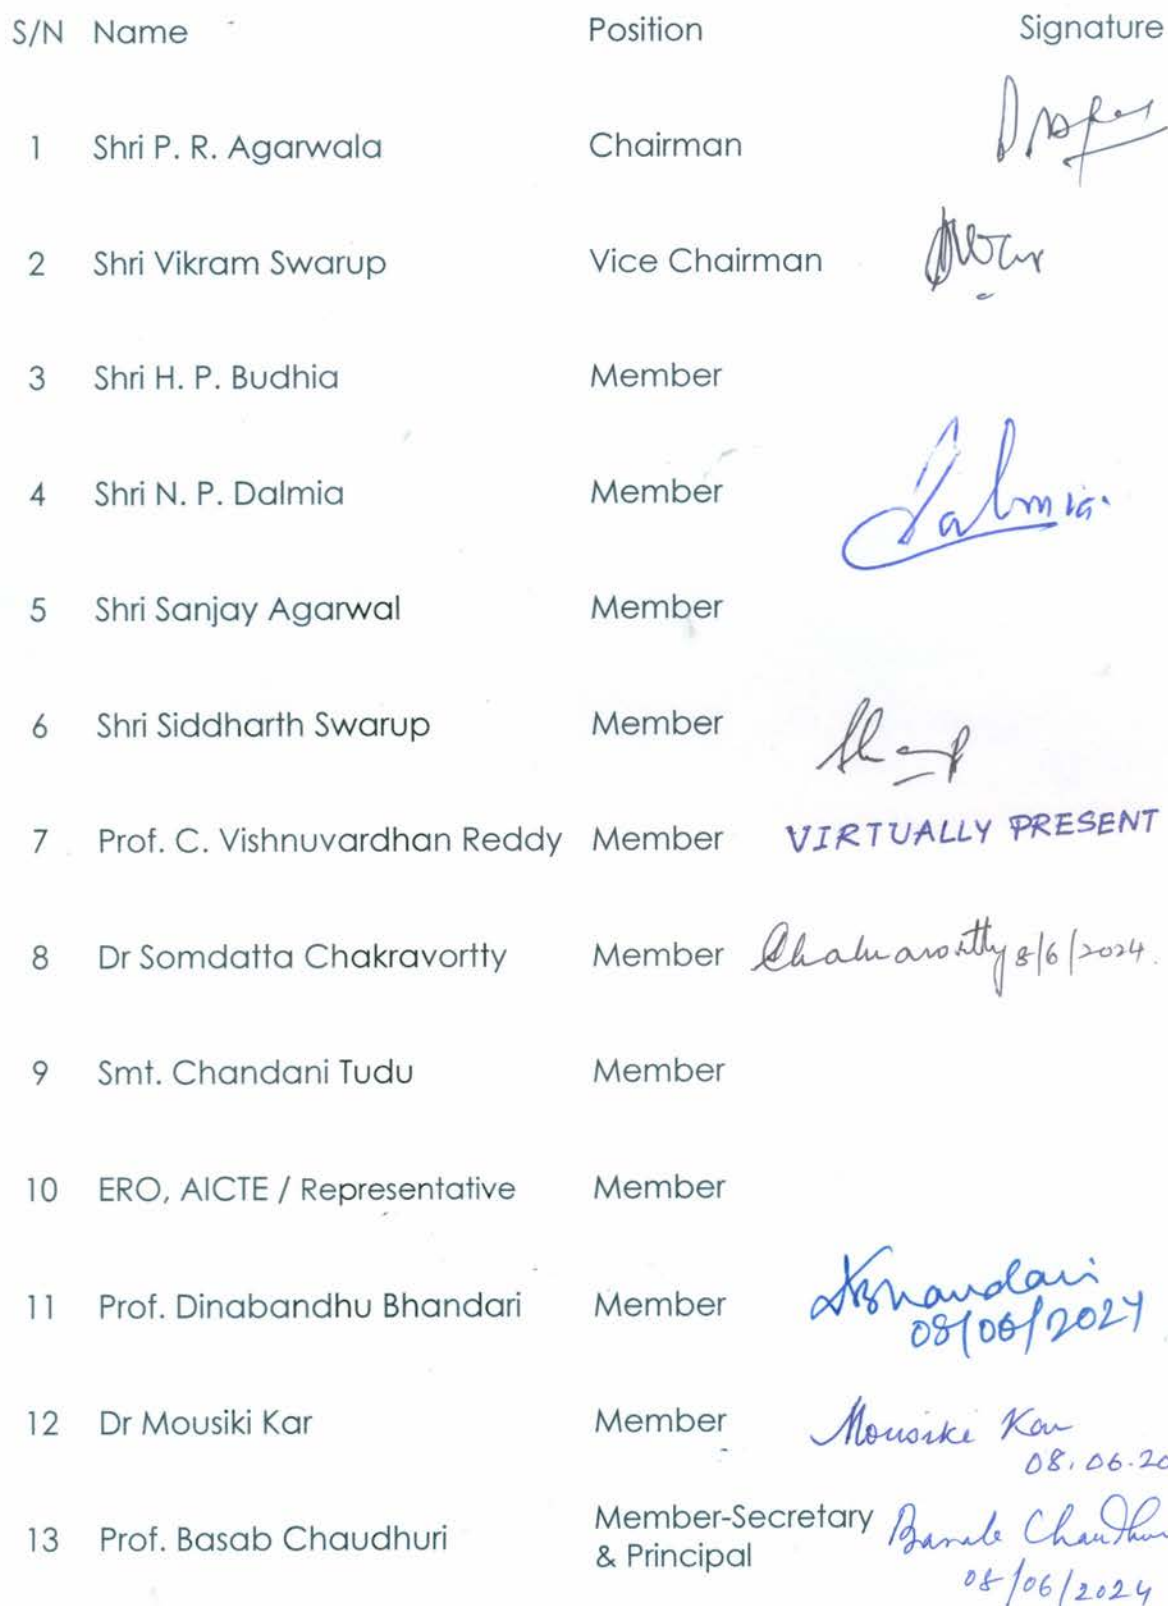 S/N Name Position Signature
1 Shri P. R. Agarwala Chairman
2 Shri Vikram Swarup Vice Chairman
3 Shri H. P. Budhia Member
4 Shri N. P. Dalmia Member Dalmia.
5 Shri Sanjay Agarwal Member
6 Shri Siddharth Swarup Member
7 Prof. C. Vishnuvardhan Reddy Member VIRTUALLY PRESENT
8 Dr Somdatta Chakravortty Member Chakravortty 8/6/2024.
9 Smt. Chandani Tudu Member
10 ERO, AICTE / Representative Member
11 Prof. Dinabandhu Bhandari Member DBhandari
08/06/2024
12 Dr Mousiki Kar Member Mousiki Kar
08.06.20
13 Prof. Basab Chaudhuri Member-Secretary Basab Chaudhur
& Principal
08/06/2024